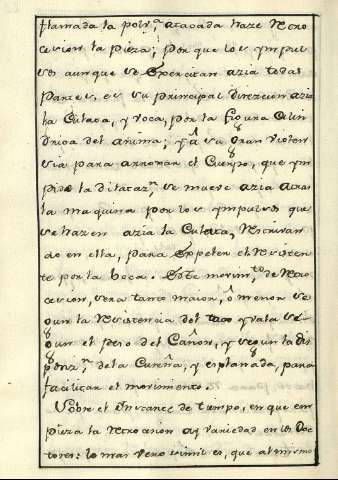 flamada la polv.ª atacada haze Retro
cesion la pieza; por que los ympul
sos aunque se Exercitan azia todas
partes, es su principal direzion azia
la Culata, y voca, por la figura Cilin
drica del anima; y â su gran violen
sia para arronar el Cuerpo, que ym
pide la dilataz.n se mueve azia atras
la maquina por los ympulsos que
se hazen azia la Culata,
do en ella, para Expeler el Resisten
te por la boca. Este movim.to de Retro
cesion, sera tanto maior, ô menor se
gun la Resistencia del taco y vala se
gun el peso del Cañon, y segun la dis
posiz.n de la Cureña, y esplanada, para
facilitar el movimiento.
Sobre el Ynstante de tiempo, en que em
pieza la Retrocesion ay variedad en los Doc
tores: lo mas vero simil es, que al mismo